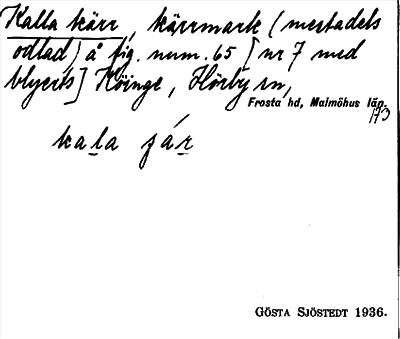 Kalla kärr, kärrmark (mestadels
odlad) å fig. num. 65 [nr 7 med
blyerts] Köinge, Hörby sn,
Frosta hd, Malmöhus län.
173
kala ʃár
GÖSTA SJÖSTEDT 1936.